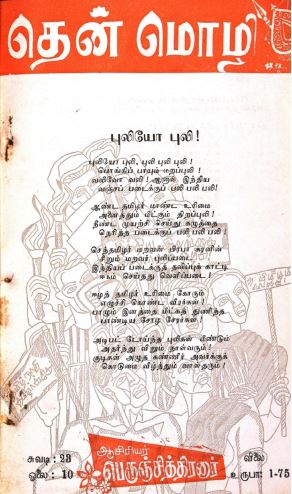 தென் மொழி
புலியோ புலி!
புலியோ புலி, புலி புலி புலி!
பொங்கிப் பாயும் மறப்புலி!
வலியோ வலி! ஆளும் இந்திய
வஞ்சப் படைக்குப் பலி பலி பலி!
ஆண்ட தமிழர் மாண்ட உரிமை
அனைத்தும் மீட்கும் திறப்புலி!
நீண்ட முயற்சி செய்து கழுத்தை
நெரித்த படைக்குப் பலி பலி பலி!
செந்தமிழர் மறவன் பிரபா கரனின்
சிறும் மறவர் புலிப்படை
இந்தியப் படைக்குத் காட்டி
ஈகம் செய்தது வெளிப்படை
ஈழத் தமிழர் உரிமை கோரும்
எழுச்சி கொண்ட வீரர்கள்!
பாழும் இனத்தை மீட்கத் துணிந்த
பாண்டிய சோழ சேரர்கள்!
அடிபட் டோய்ந்த புலிகள் மீண்டும்
அதர்ந்து வீறும் நாள்வரும்!
குடிகள் அழுத கண்ணீர் அவர்க்குக்
கொடுமை வீழ்த்தும் வாள்தரும்!
சுவடி: 23
ஓலை: 10
ஆசிரியர்
பெருஞ்சித்திரனார்
விலை
உருபா: 1-75